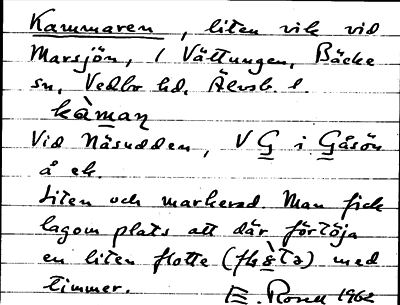 Kammaren, liten vik vid
Marsjön, i Vättungen, Bäcke
sn, Vedbo hd, Älvsb. l.
kàman
Vid Näsudden, V G i Gåsön
å ek.
Liten och markerad. Man fick
lagom plats att där förtöja
en liten flotte med
timmer.
E. Rosell 1962